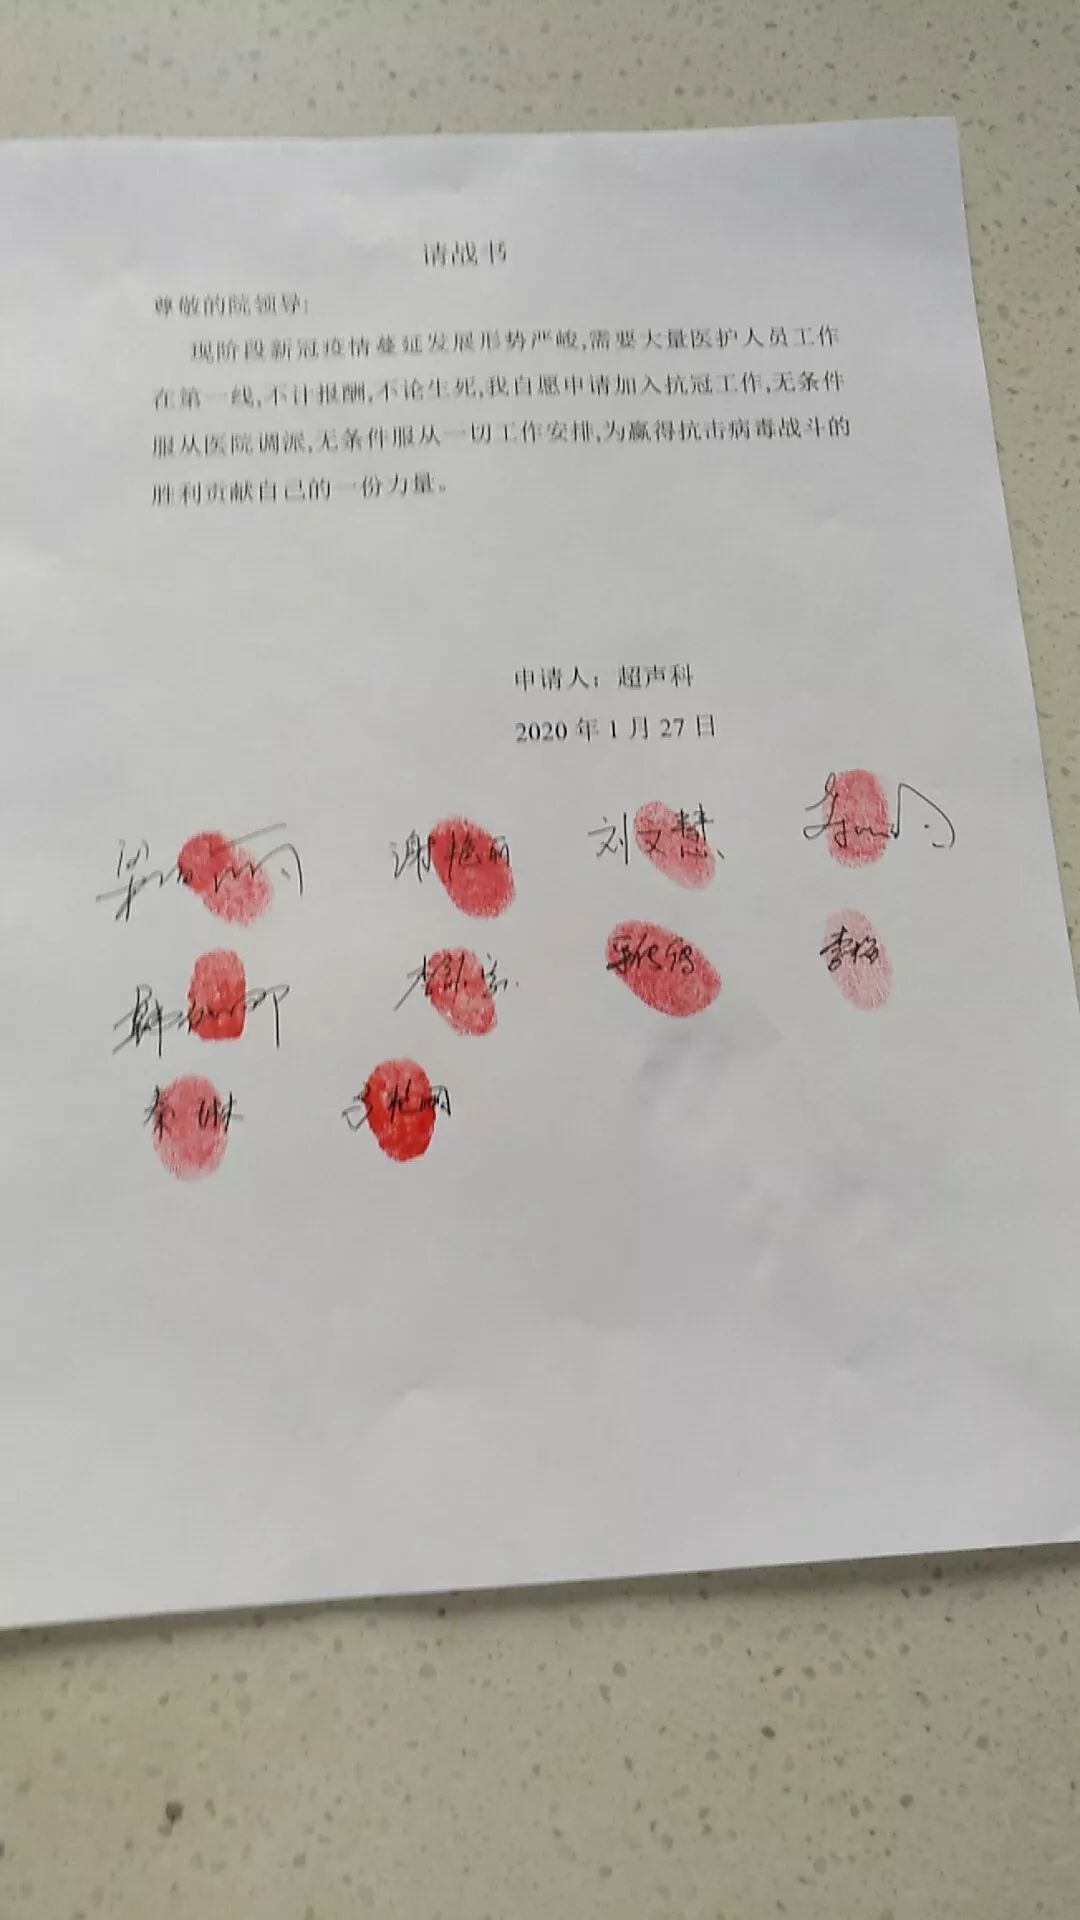 请战书
尊敬的院领导:
现阶段新冠疫情蔓延发展形势严峻,需要大量医护人员工作
在第一线,不计报酬,不论生死,我自愿申请加入抗冠工作,无条件
服从医院调派,无条件服从一切工作安排,为赢得抗击病毒战斗的
胜利贡献自己的一份力量。
申请人：超声科
2020年1月27日
谢艳丽 刘文慧
李梅
秦琳